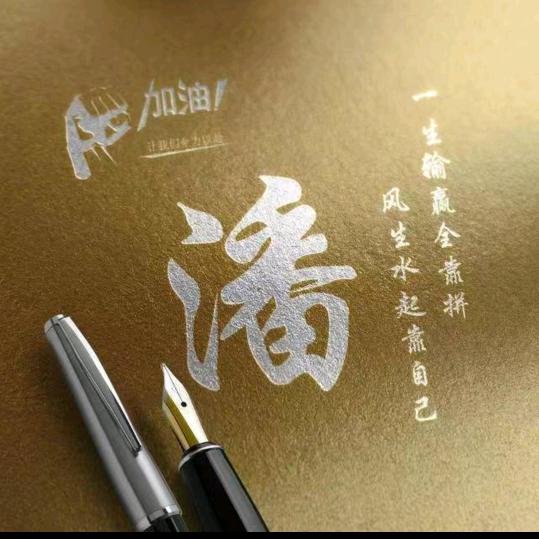 加油!
让我们全力以赴
潘
一生输赢全靠拼
风生水起靠自己